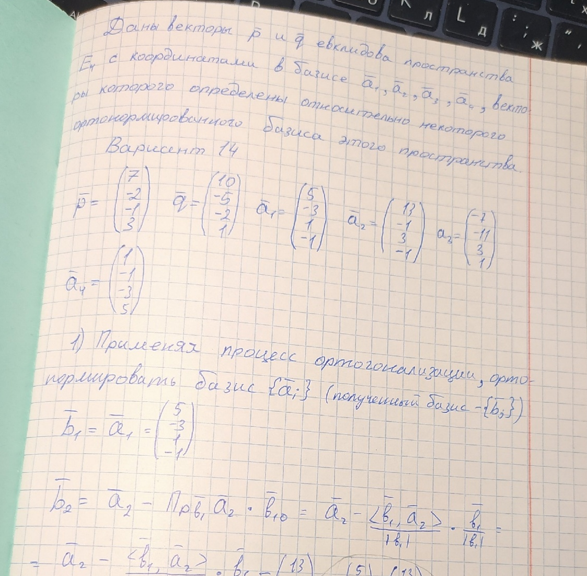 Даны векторы p̄ и q̄ евклидова пространства
E₄ с координатами в базисе ā₁, ā₂, ā₃, ā₄, векто-
ры которого определены относительно некоторого
ортонормированного базиса этого пространства.
Вариант 14
p̄ = (7 -2 -1 3) q̄ = (10 -5 -2 1) ā₁ = (5 -3 1 -1) ā₂ = (13 -1 3 -1) a₃ = (-7 -11 3 1)
ā₄ = (1 -1 -3 5)
1) Применяя процесс ортогонализации, орто-
нормировать базис {āᵢ} (полученный базис - {b̄ⱼ})
b̄₁ = ā₁ = (5 -3 1 -1)
b̄₂ = ā₂ - Пр b̄₁ ā₂ · b̄₁₀ = ā₂ - <b̄₁, ā₂> / |b̄₁| · b̄₁ / |b̄₁| =
= ā₂ - <b̄₁, ā₂> · b̄₁ = (13 (5 (13